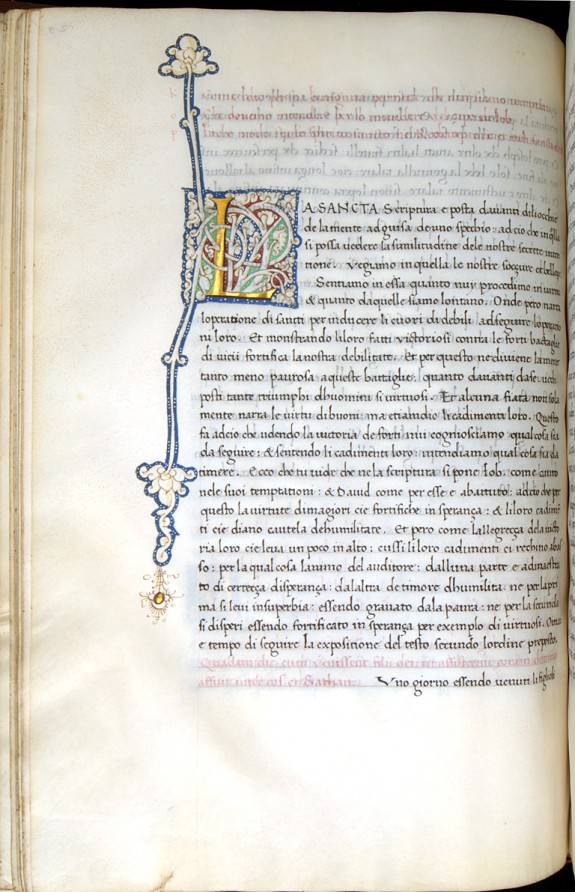 LA SANCTA Scriptura e posta dauanti di liocchie
de lamente ad guisa de uno spechio: ad cio che in essa
si possa uedere la similitudine dele nostre secrete
tione. Vegiamo in quella le nostre socçure et belleçe
Sentiamo in essa quanto nuy procedimo in uirtu
& quanto da quelle siamo lontano. Onde pero narra
loperatione di sancti per inducere li cuori du debili ad seguire loperatio
ni loro. Et monstrando liloro fatti uictoriosi contra le forti battaglie
di uicii fortifica la nostra debilitate. Et per questo ne diuiene la mente
tanto meno paurosa a queste battaglie: quanto dauanti da se uede
posti tante triumphi dhuomini si uirtuosi. Et alcuna fiata non sola
mente narra le uirtu di buoni ma etiamdio li cadimenti loro. Questo
fa adcio che udendo la uictoria de forti nui cogniosciamo qual cosa sia
da seguire: & sentendo li cadimenti loro: intendiamo qual cosa sia da
timere. Ecco che tu uide che ne la scriptura si pone Iob. come
nele suoi temptationi: & Dauid come per esse e abattuto: adcio che per
questo la uirtute dimagiori cie fortifiche in sperança: & li loro cadime
ti cie diano cautela de humilitate. Et pero come la llegreçça dela uicto
ria loro cie leua un poco in alto: cussi li loro cadimenti ci rechino abas
so: per la qual cosa lanimo del auditore: dalluna parte e admaestra
to di certeça disperança: dalaltra de timore dhumilita: ne per la pri
ma si leui insuperbia: essendo grauato dala paura: ne per la secunda
si disperi essendo fortificato in sperança per exemplo di uirtuosi. Ormai
e tempo di seguire la expositione del testo secundo lordine preposto.
Quadam die cum uenissent filii dei ut assisterent coram
affuit inter eos et Sathan. Vno giorno essendo uenuti li figlioli